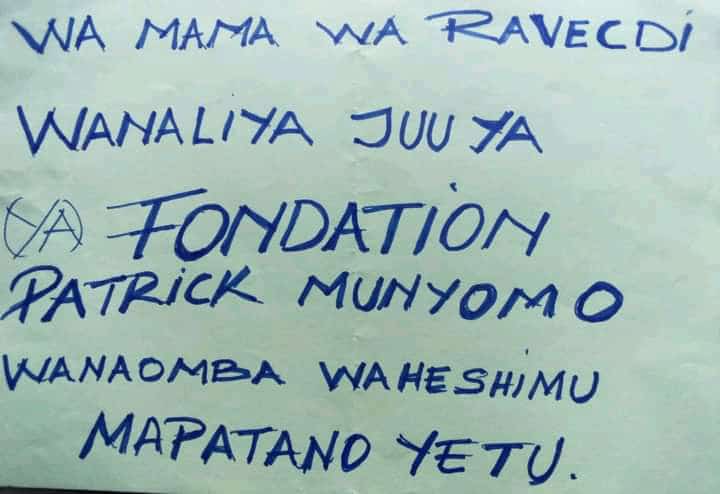 WA MAMA WA RAVECDI
WANALIYA JUU YA
(YA) FONDATION
PATRICK MUNYOMO
WANAOMBA WAHESHIMU
MAPATANO YETU.